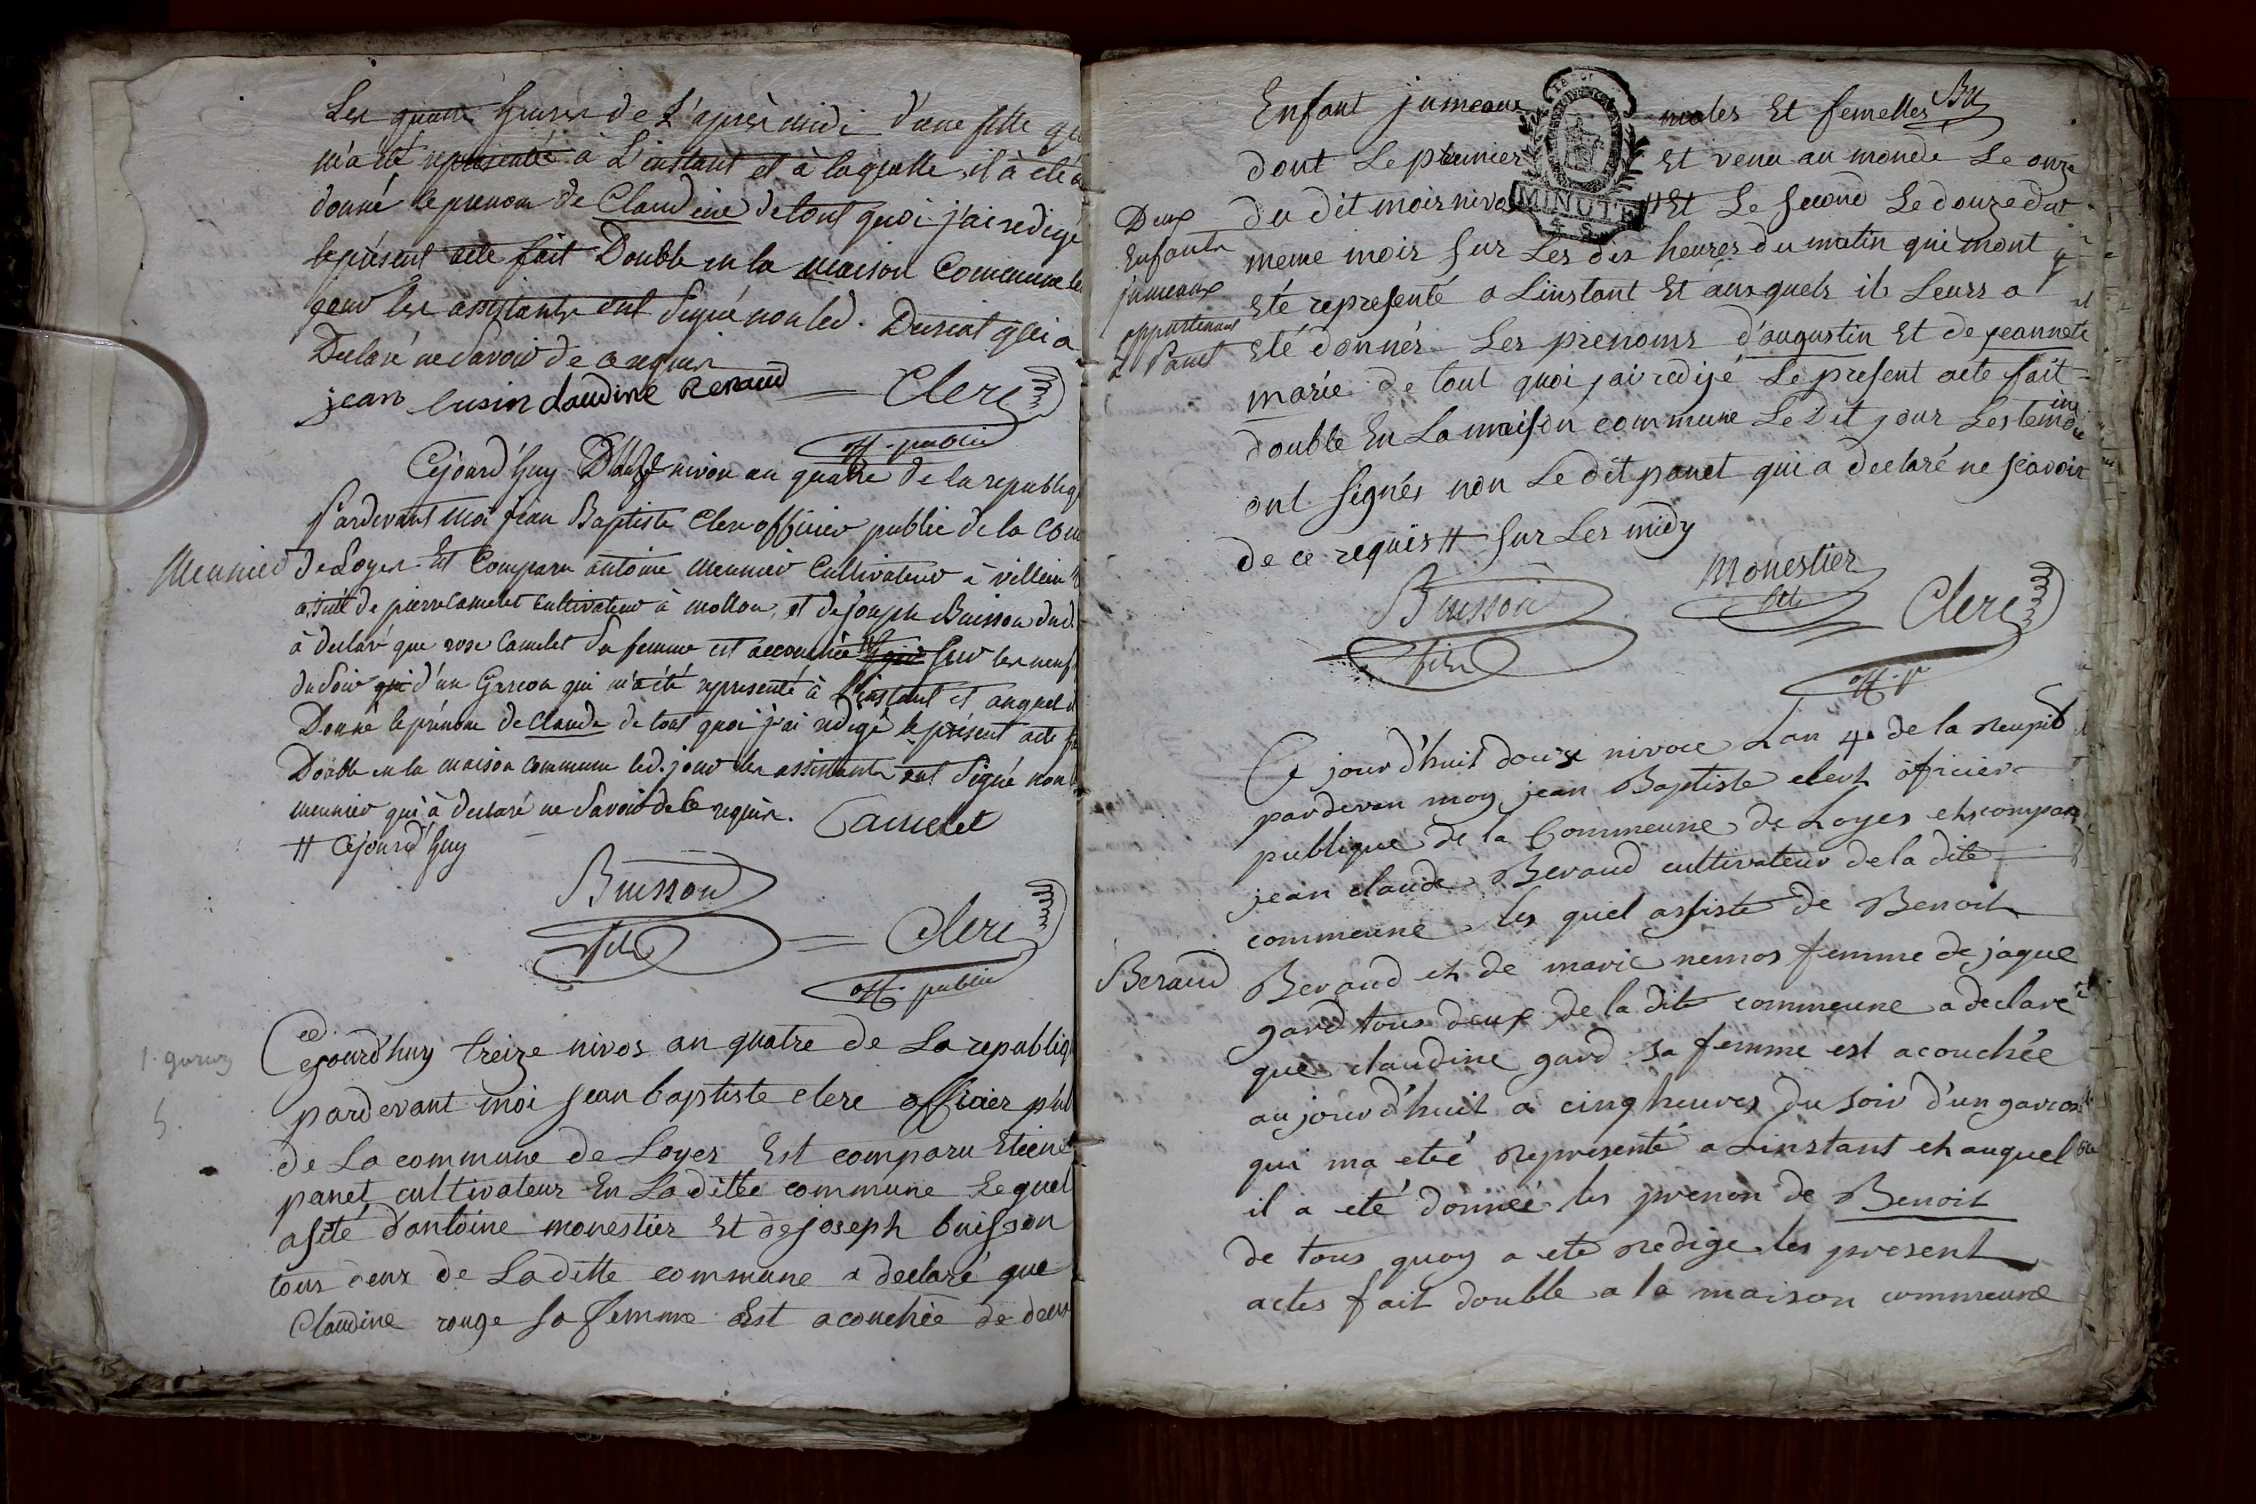 Les quatre heures de L'après midi d'une fille qu
m'a été représentée à L'instant et à laquelle il à été
donné le prenom de Claudine de tout quoi j'ai redigé
le présent acte fait Double en la maison Commune led
jour les assistants ont signé non led. qui a
Declaré ne savoir de ce requis
jean lusin claudine Renaud Clerc
off. public
Cejourd'huy Douze nivos an quatre de la republiq
Pardevant moi jean Baptiste Clerc officier public de la com
Meunier
de Loyes Est Comparu antoine meunier Cultivateur à
assisté de pierre Camelet cultivateur à mollon, et de joseph Buisson dud.
à declaré que rose Camelet sa femme est accouchée # sur les neuf
du soir qui d'un Garcon qui m'a été représenté à l'instant et auquel
Donné le prénom de Claude de tout quoi j'ai redigé le présent acte
Double en la maison commune led. jour les assistants ont signé non
meunier qui à declaré ne savoir de ce requis.
# Cejourd'huy
Camelet
Buisson
fils
Clerc
off. public
Cejourd'huy treize nivos an quatre de La republiq
pardevant moi jean baptiste clerc officier pub
de La commune de Loyes Est comparu Etiene
panet cultivateur En Laditte commune Lequel
asité d'antoine monestier Et de joseph buisson
tous deux de Laditte commune a declaré que
Claudine rouge sa femme Est acouchée de deux
Enfant jumeaux males Et femelles
dont Le premier Et venu au monde Le onze
du dit mois nivos # Et Le second Le douze dud
MINUTE
Deux
Enfants
jumeaux
appartenant
à Panet
meme mois sur Les dix heures du matin qui mont
été representé a Linstant Et auxquels il Leurs a
été donnés Les prenoms d'augustin Et de jeannete
marie de tout quoi jai redijé Le present acte fait
double En La maison commune Le Dit jour Les temoin
ont signés non Le dit panet qui a declaré ne scavoir
de ce requis # sur Les midy
Buisson
fils
Monestier
Clerc
off. p
Ce jourd'huit douze nivose Lan 4 de la Reupib
pardevan moy jean Baptiste clerc oficier
publique de la Commeune de Loyes et compar
jean claude Beraud cultivateur de la dite
commeune les quel assisté de Benoit
Beraud
Beraud et de marie nemos femme de jaque
gard tous deux de la dite commeune a declaré
que claudine gard sa femme est acouchée
aujourd'huit a cinq heures du soir d'un garcon
qui ma eté represénté a Linstant et auquel
il a eté donneé les prenon de Benoit
de tous quoy a ete redige les present
actes fait double a la maison commeune